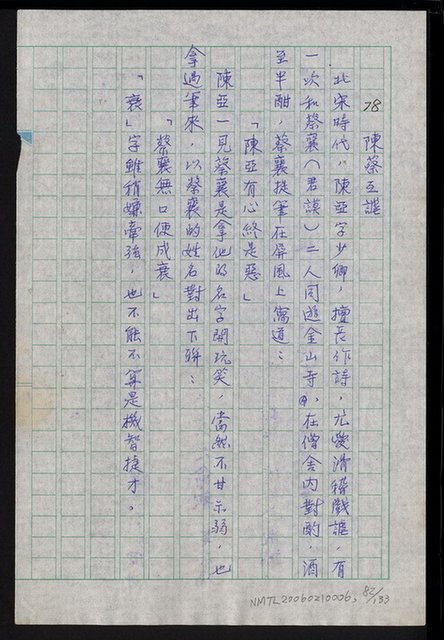 78 陳蔡互謔
北宋時代,陳亞字少卿,擅長作詩,尤愛滑稽戲謔,有
一次和蔡襄(君謨)二人同遊金山寺,在僧舍內對酌,酒
至半酣,蔡襄提筆在屏風上寫道:
「陳亞有心終是惡」
陳亞一見蔡襄是拿他的名字開玩笑,當然不甘示弱,也
拿過筆來,以蔡襄的姓名對出下聯:
「蔡襄無口便成衰」
「衰」字雖稍嫌牽強,也不能不算是機智捷才。
NMTL20060210006, 82/133